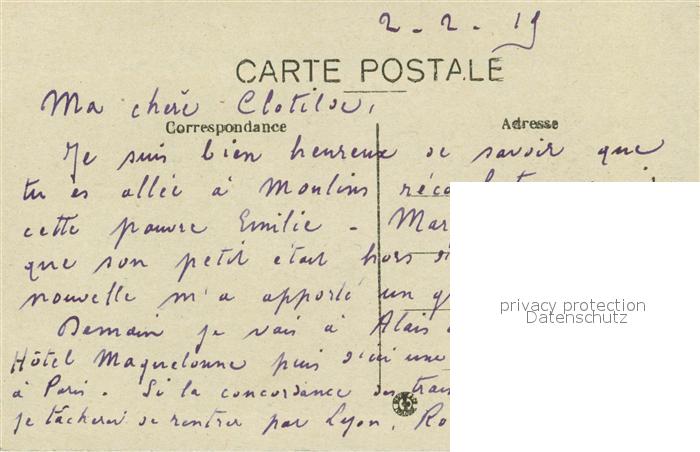 2 - 2 - 19
CARTE POSTALE
Ma chère Clotilde,
Correspondance
Adresse
Je suis bien heureux de savoir que
tu es allée à Moulins
cette pauvre Emilie - Mar
que son petit était hors
nouvelle m'a apporté un
Demain je vais à Alais
Hôtel Maguelonne puis d'ici une
à Paris. Si la concordance des
je tâcherai de rentrer par Lyon, Ro
privacy protection
Datenschutz